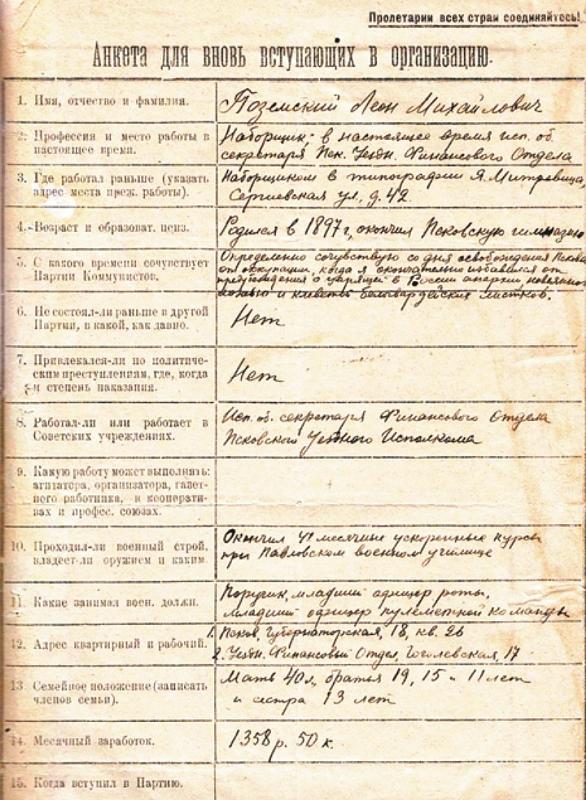 Пролетарии всех стран соединяйтесь!
Анкета для вновь вступающих в организацию.
1. Имя, отчество и фамилия.
Поземский Леон Михайлович
2. Профессия и место работы в
настоящее время.
Наборщик; в настоящее время исп. об.
секретаря Пск. Уездн. Финансового Отдела
3. Где работал раньше (указать
адрес места преж. работы).
Наборщиком в типографии Я. Митревица,
Сергиевская ул., д. 42.
4. Возраст и образоват. ценз.
Родился в 1897 г, окончил Псковскую гимназию
5. С какого времени сочувствует
Партии Коммунистов.
Определенно сочувствую со дня освобождения Пскова
от оккупации, когда я окончательно избавился от
предубеждения о царящей в России анархии навеянного
ложью и клеветой белогвардейских листков.
6. Не состоял-ли раньше в другой
Партии, в какой, как давно.
Нет
7. Привлекался-ли по политиче-
ским преступлениям, где, когда
и степень наказания.
Нет
8. Работал-ли или работает в
Советских учреждениях.
Исп. об. секретаря Финансового Отдела
Псковского Уездного Исполкома
9. Какую работу может выполнять:
агитатора, организатора, газет-
ного работника, в кооперати-
вах и профес. союзах.
10. Проходил-ли военный строй,
владеет-ли оружием и каким.
Окончил месячные ускоренные курсы
при Павловском военном училище
11. Какие занимал воен. должн.
Поручик, младший офицер роты,
младший офицер пулеметной команды
12. Адрес квартирный и рабочий.
1. Псков, Губернаторская, 18, кв. 26
2. Уездн. Финансовый Отдел, Гоголевская, 17
13. Семейное положение (записать
членов семьи).
Мать 40 л, братья 19, 15 и 11 лет
и сестра 13 лет
14. Месячный заработок.
1358 р. 50 к.
15. Когда вступил в Партию.